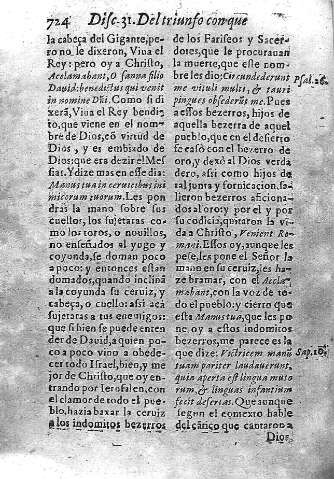 724 Disc. 31. Del triunfo con que
la cabeça del Gigante, pe-
ro no le dixeron, Viva el
Rey: pero oy a Christo,
Acclamabant, o sanna filio
David: benedictus qui venit
in nomine Dñi. Como si di
xerã, Viva el Rey bendi-
to, que viene en el nom-
bre de Dios, cõ virtud de
Dios, y es embiado de
Dios: que era dezir el Mes
sias. Y dize mas en este dia:
Manus tua in cervicibus ini
micorum tuorum. Les pon
dras la mano sobre sus
cuellos, los sujetaras co-
mo los toros, o nouillos,
no enseñados al yugo y
coyunda, se doman poco
a poco: y entonces estan
domados, quando inclinã
a la coyunda su ceruiz, y
cabeça, o cuello: assi acà
sujetaras a tus enemigos:
que si bien se puede enten
der de David, a quien po-
co a poco vino a obede-
cer todo Israel, bien, y me
jor de Christo, que oy en-
trando por Ierusalen, con
el clamor de todo el pue-
blo, hazia baxar la ceruiz
a los indomitos bezerros
de los Fariseos y Sacer-
dotes, que le procurauan
la muerte, que este nom-
bre les dio: Circundederunt
me vituli multi, & tauri
pingues obsederũt me. Pues
a essos bezerros, hijos de
aquella bezerra de aquel
pueblo, que en el desierto
se casò con el bezerro de
oro, y dexò al Dios verda
dero, assi como hijos de
tal junta y fornicacion, sa-
lieron bezerros aficiona-
dos al oro y por el, y por
su codicia, quitaron la vi-
da a Christo, Venient Ro-
mani. Essos oy, aunque les
pese, les pone el Señor la
mano en su ceruiz, les ha-
ze bramar, con el Accla-
mabant, con la voz de to-
do el pueblo: y cierto que
esta Manus tua, que les po-
ne oy a estos indomitos
bezerros, me parece es la
que dize: Victricem manũ
tuam pariter laudauerunt,
quia aperta est lingua muto
rum, & linguas infantium
fecit desertas. Que aunque
segun el contexto hable
del cãtico que cantaron a
Dios
Psal. 26.
Sap. 10.